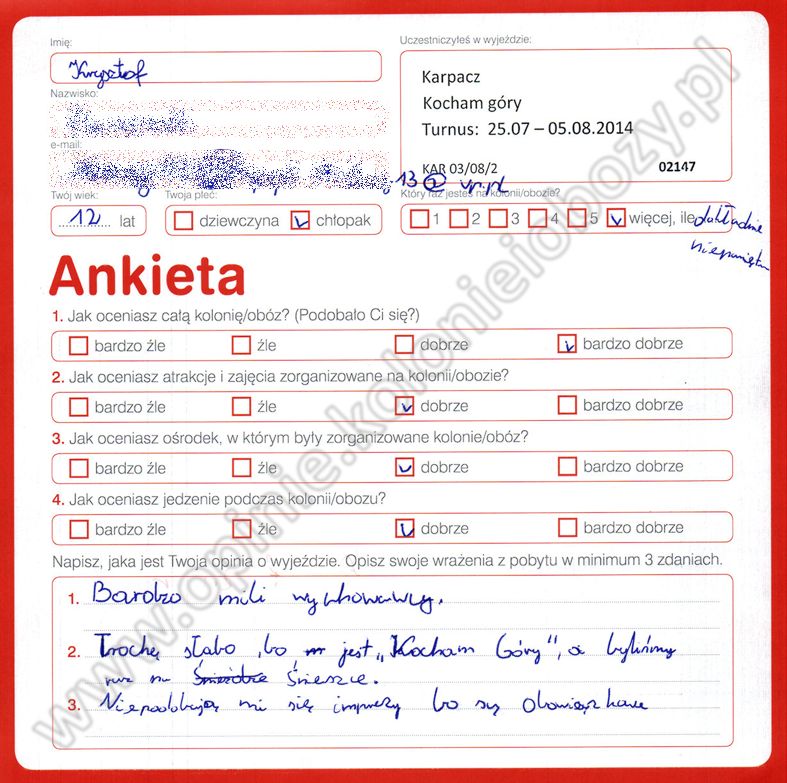 Imię:
Krzysztof
Nazwisko:
e-mail:
13@vp.pl
Uczestniczyłeś w wyjeździe:
Karpacz
Kocham góry
Turnus: 25.07 – 05.08.2014
KAR 03/08/2 02147
Twój wiek:
12 lat
Twoja płeć:
dziewczyna chłopak
Który raz jesteś na kolonii/obozie?
1 2 3 4 5 więcej, ile dokładnie
niepamiętam
Ankieta
1. Jak oceniasz całą kolonię/obóz? (Podobało Ci się?)
bardzo źle źle dobrze bardzo dobrze
2. Jak oceniasz atrakcje i zajęcia zorganizowane na kolonii/obozie?
bardzo źle źle dobrze bardzo dobrze
3. Jak oceniasz ośrodek, w którym były zorganizowane kolonie/obóz?
bardzo źle źle dobrze bardzo dobrze
4. Jak oceniasz jedzenie podczas kolonii/obozu?
bardzo źle źle dobrze bardzo dobrze
Napisz, jaka jest Twoja opinia o wyjeździe. Opisz swoje wrażenia z pobytu w minimum 3 zdaniach.
1. Bardzo mili wychowawcy.
2. Trochę słabo, bo jest „Kocham Góry", a byliśmy
raz na Śnieżce.
3. Niepodobają mi się imprezy bo są obowiązkowe
www.opinie.kolonieiobozy.pl